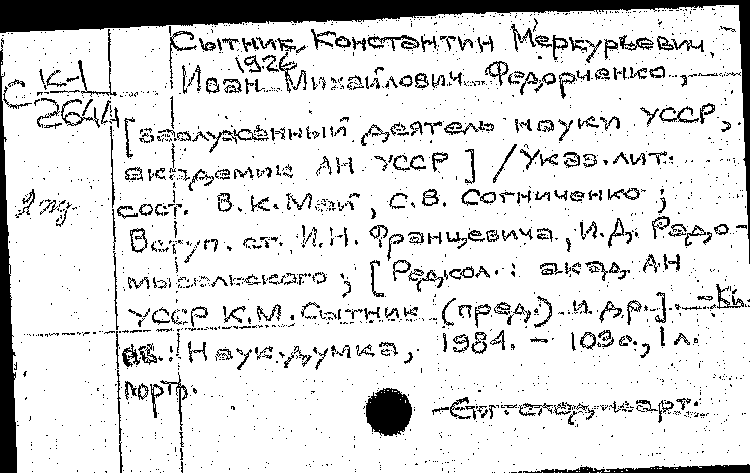 Сытник, Константин Меркурьевич.
1926
С К-1
2644
Иван Михайлович Федорченко,
[заслуженный деятель науки УССР,
академик АН УССР] / Указ. лит.
2 пд
сост. В.К. Май, С.В. Согниченко;
Вступ. ст. И.Н. Францевича, И.Д. Радо-
мысельского; [Редкол.: акад. АН
УССР К.М. Сытник (пред.) и др.]. – Ки-
ев.: Наук. думка, 1984. – 103 с., 1 л.
портр.
См. след. карт.